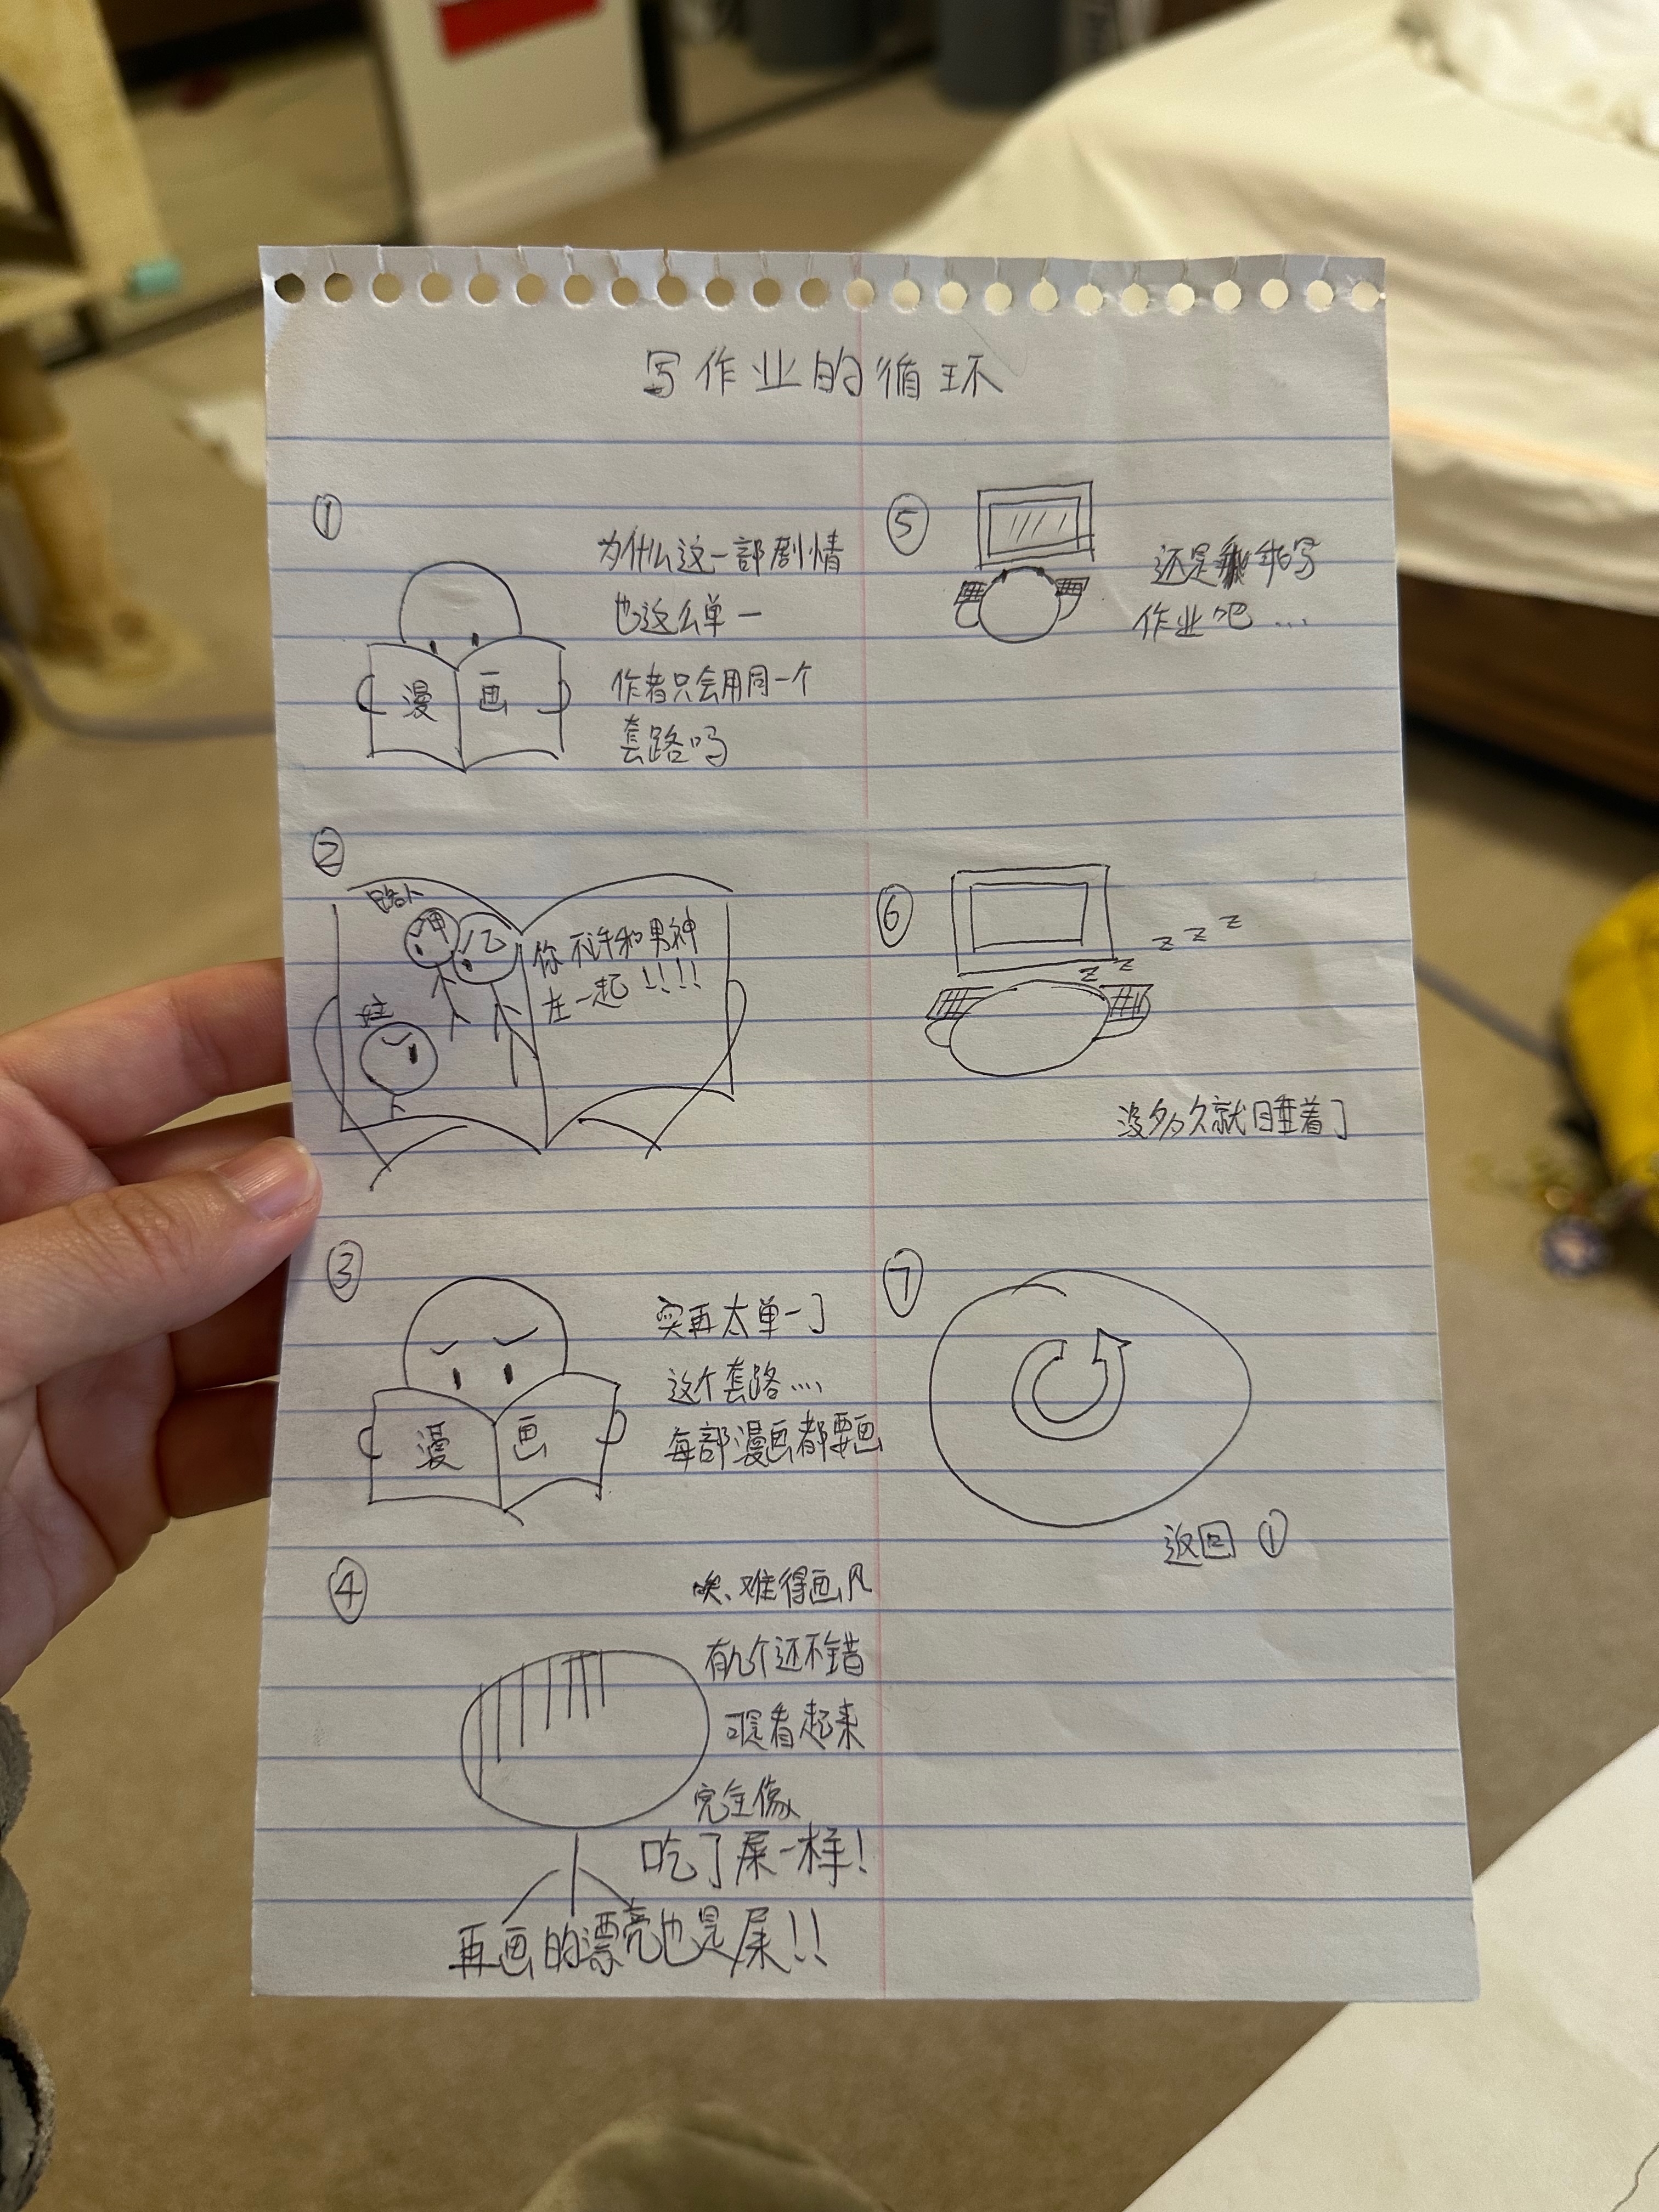 写作业的循环
①
为什么这一部剧情
也这么单一
作者只会用同一个
套路吗
漫 画
②
路人
甲 乙
你不许和男神
在一起!!!!
③
实再太单一了
这个套路....
每部漫画都要画
漫 画
④
唉、难得画风
有几个还不错
可是看起来
完全像
吃了屎一样!
再画的漂亮也是屎!!
⑤
还是 写
作业吧...
⑥
z z z z z
没多久就睡着了
⑦
返回 ①